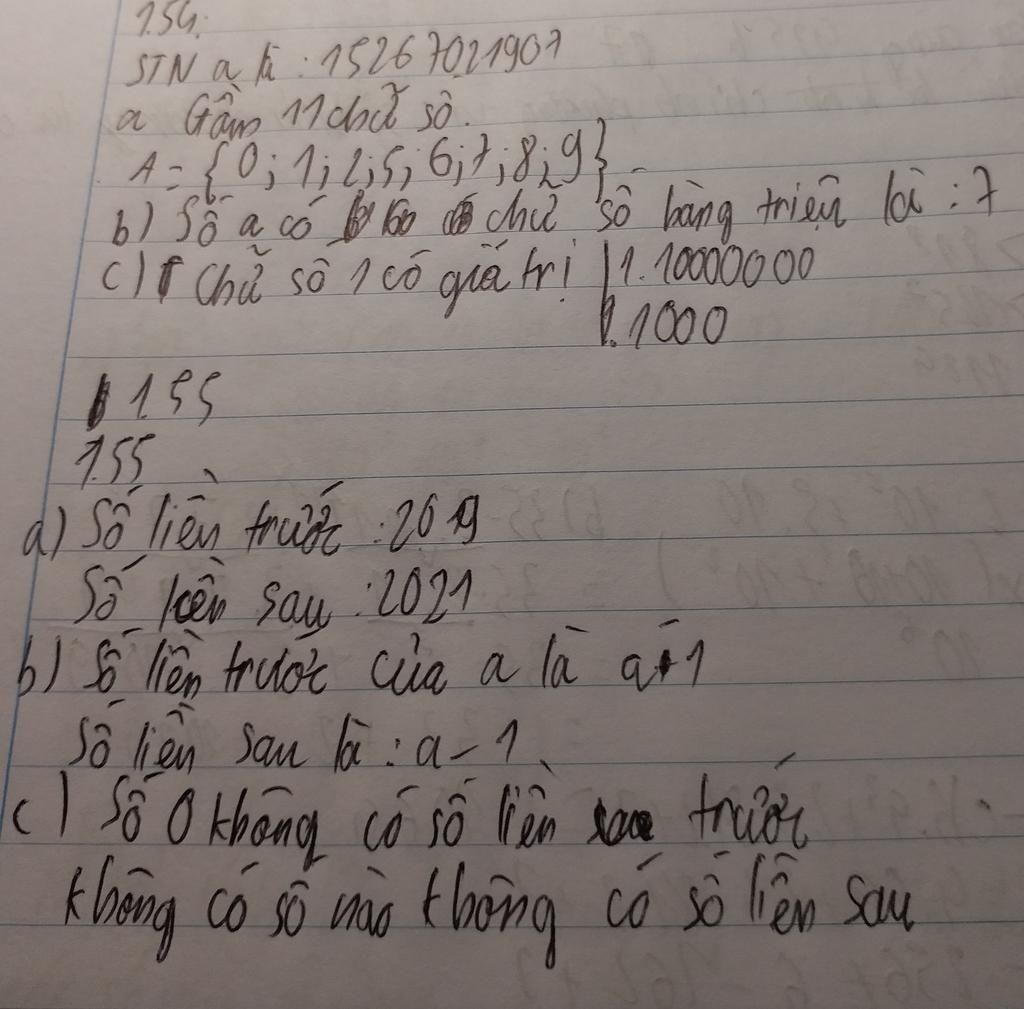 1.54.
STN a là : 15267021907
a Gồm 11 chữ số.
A = {0; 1; 2; 5; 6; 7; 8; 9}
b) Số a có chữ số hàng triệu là : 7
c) Chữ số 1 có giá trị 1.10000000
1.1000
155
1.55
a) Số liền trước : 2019
Số liền sau : 2021
b) Số liền trước của a là a+1
Số liền sau là : a-1
c) Số 0 không có số liền trước
không có số nào không có số liền sau